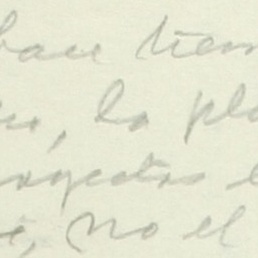 hace tiem
, la pla
royectos e
, no el